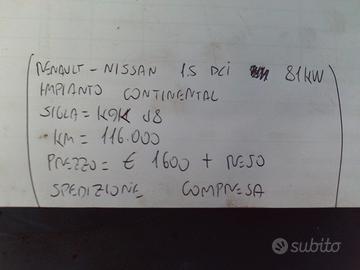 RENAULT - NISSAN 1.5 DCI 81KW
IMPIANTO CONTINENTAL
SIGLA = K9K J8
KM = 116.000
PREZZO = € 1600 + RESO
SPEDIZIONE COMPRESA
subito